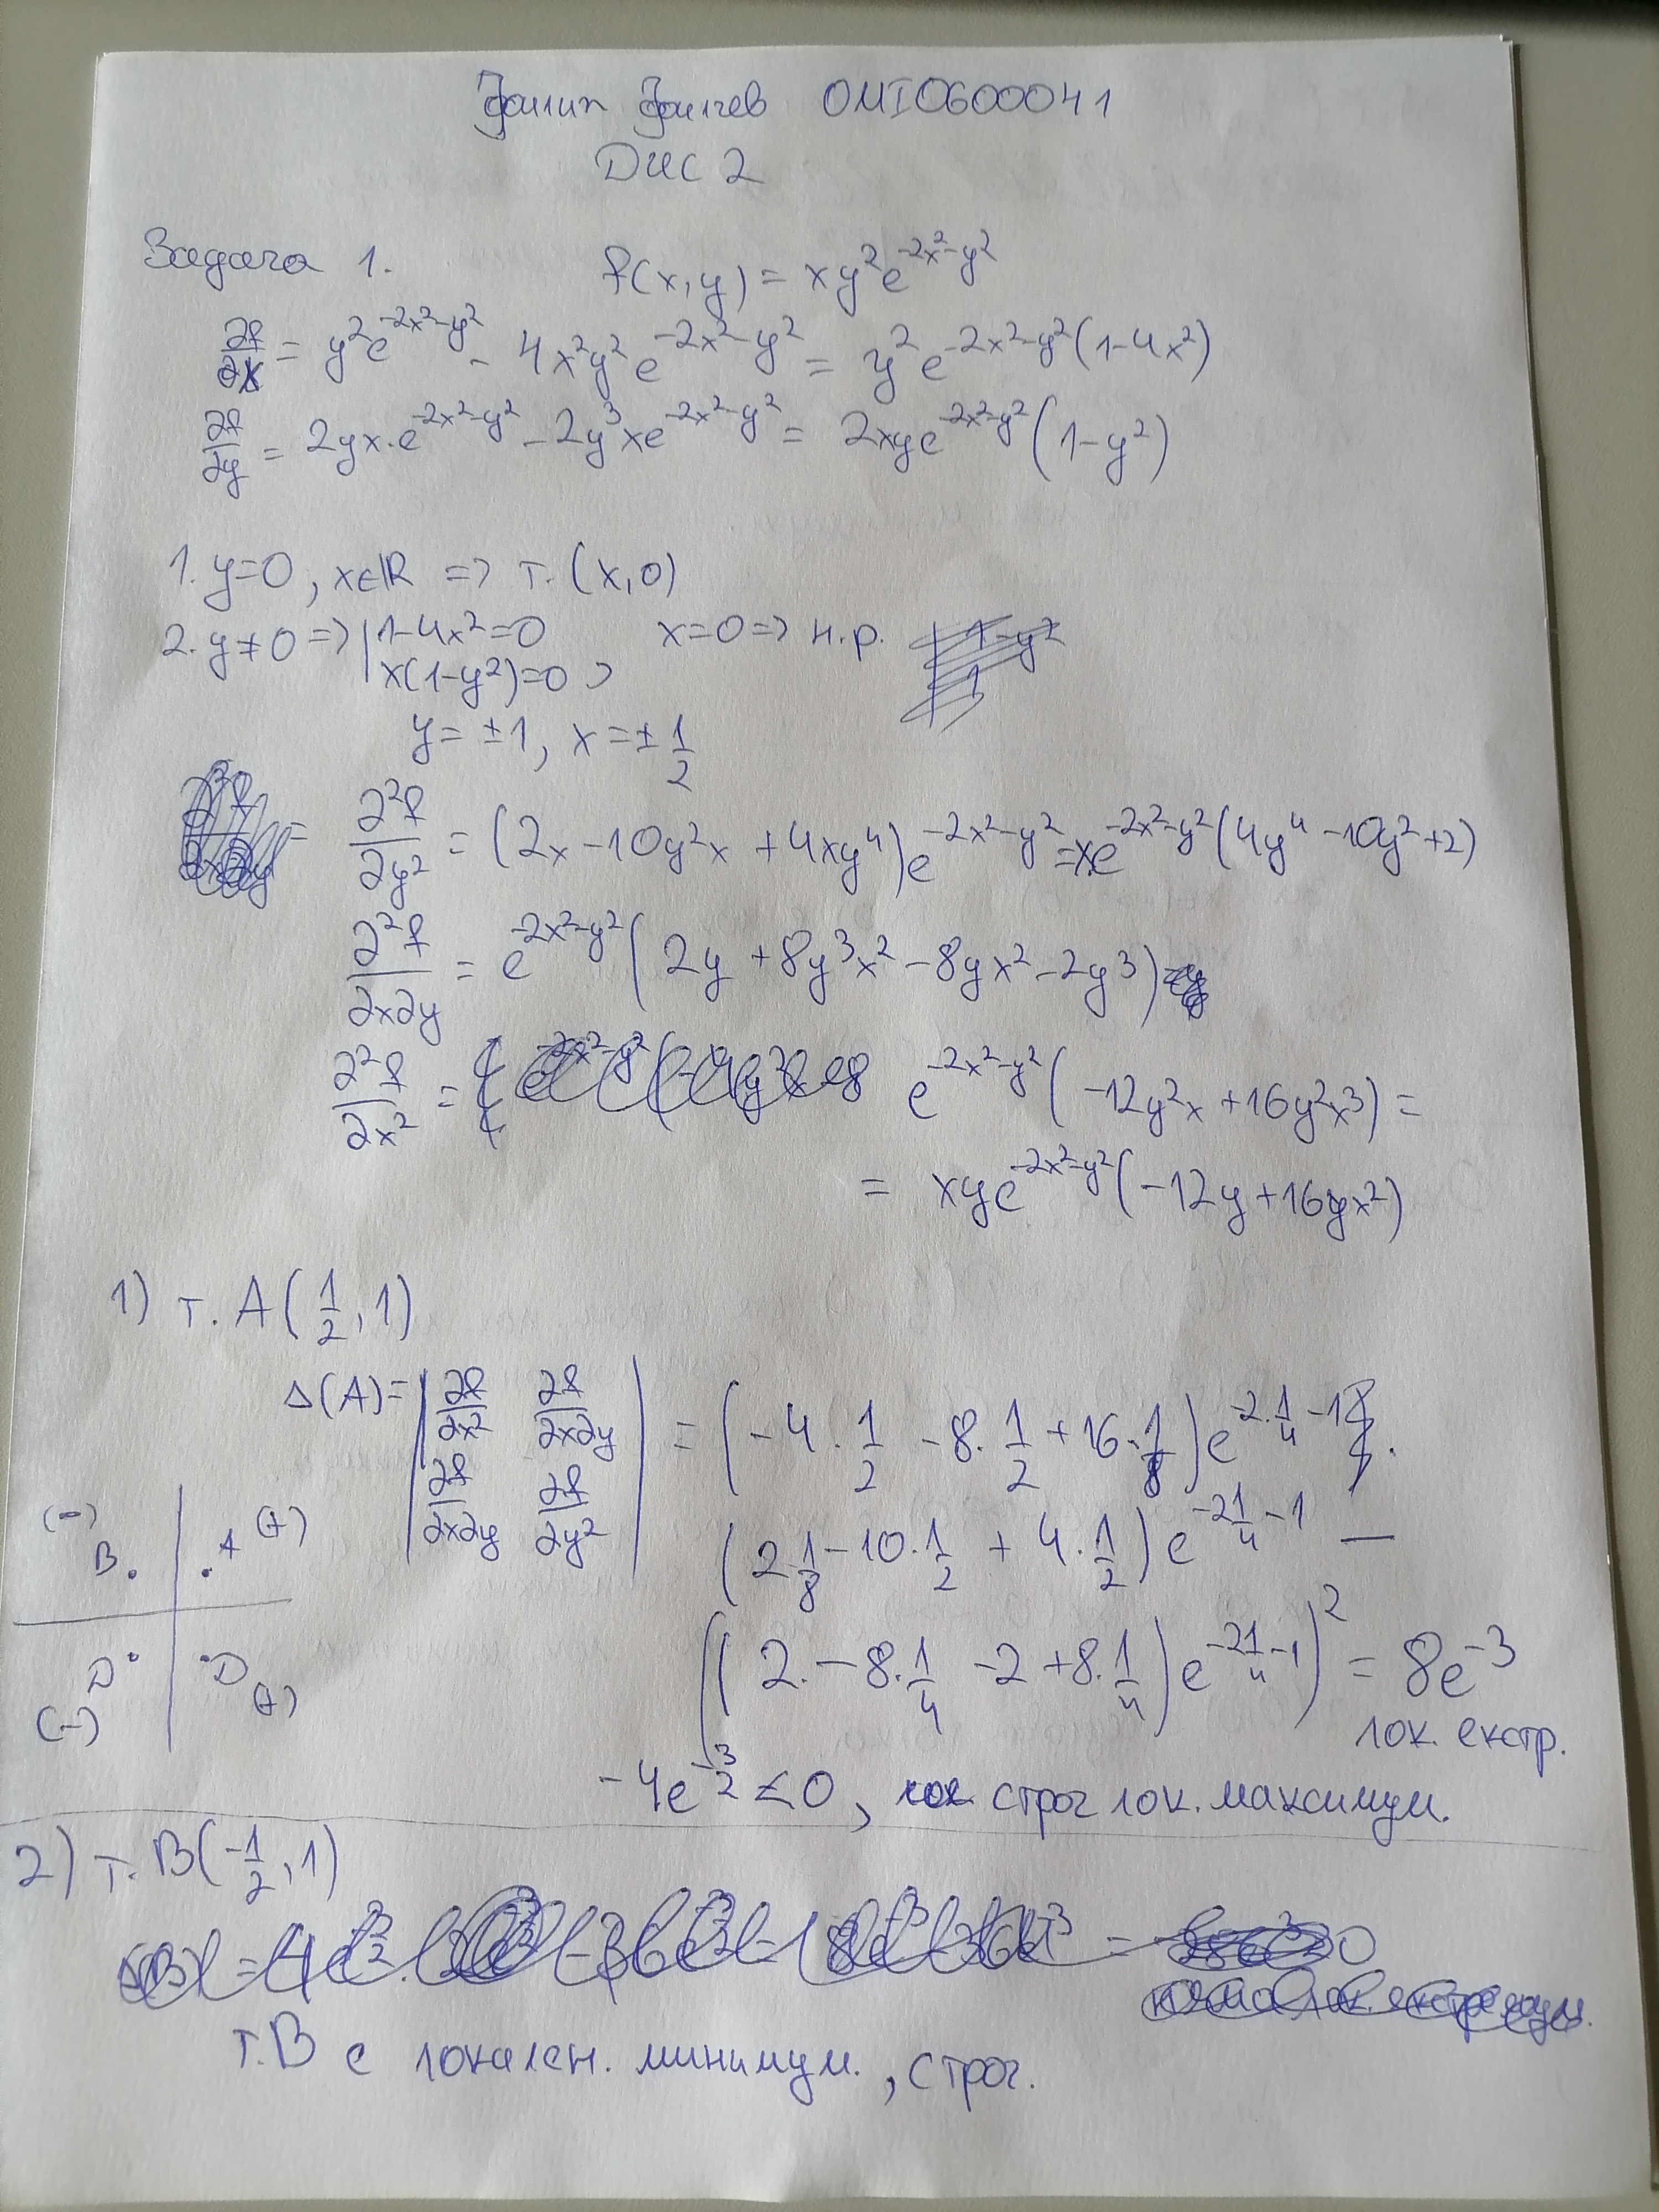 0MI0600041
ДИС 2
Задача 1. f(x,y) = xy²e^{-2x²-y²}
∂f/∂x = y²e^{-2x²-y²} - 4x²y²e^{-2x²-y²} = y²e^{-2x²-y²}(1-4x²)
∂f/∂y = 2yx.e^{-2x²-y²} - 2y³xe^{-2x²-y²} = 2xye^{-2x²-y²}(1-y²)
1. y=0, x∈ℝ => т. (x,0)
2. y≠0 => | 1-4x²=0 x=0 => н.р.
| x(1-y²)=0
y=±1, x=±1/2
∂²f/∂y² = (2x-10y²x+4xy⁴)e^{-2x²-y²} = xe^{-2x²-y²}(4y⁴-10y²+2)
∂²f/∂x∂y = e^{-2x²-y²}(2y+8y³x²-8yx²-2y³)
∂²f/∂x² = e^{-2x²-y²}(-12y²x+16y²x³) =
= xye^{-2x²-y²}(-12y+16yx²)
1) т. A(1/2, 1)
Δ(A) = | ∂f/∂x² ∂f/∂x∂y | = (-4.1/2 - 8.1/2 + 16.1/8)e^{-2.1/4-1}.
| ∂f/∂x∂y ∂f/∂y² | (2.1/8 - 10.1/2 + 4.1/2)e^{-2 1/4-1} —
(-) B. .A (+)
D. .D (-) (+)
((2.-8.1/4 -2+8.1/4)e^{-2 1/4-1})² = 8e^{-3}
лок. екстр.
-4e^{-3/2} < 0, строг лок. максимум.
2) т. B(-1/2, 1)
т. B е локален. минимум., строг.